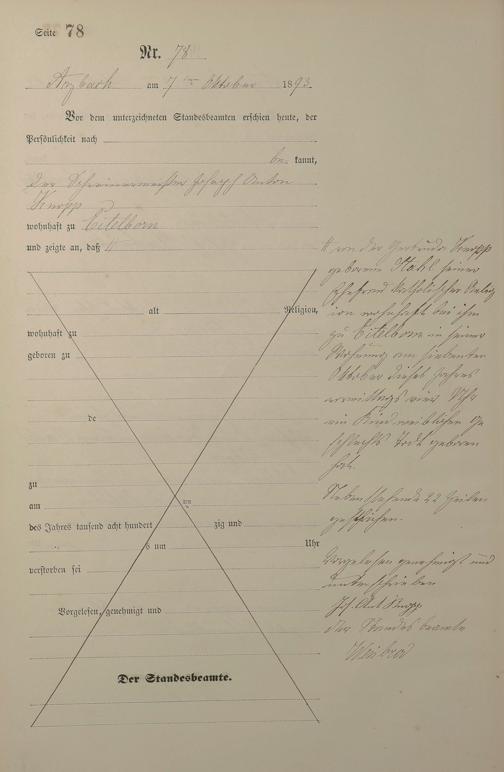 Seite 78
Nr. 78
Arzbach am 7ten Oktober 1893.
Vor dem unterzeichneten Standesbeamten erschien heute, der
Persönlichkeit nach
be kannt,
der Schreinermeister Joseph Anton
Knopp
wohnhaft zu Eitelborn
und zeigte an, daß
alt Religion,
wohnhaft zu
geboren zu
de
zu
am ten
des Jahres tausend acht hundert zig und
s um Uhr
verstorben sei
Vorgelesen, genehmigt und
Der Standesbeamte.
von der Gertrude Knopp
geborene Stahl seiner
Ehefrau katholischer Relig
ion wohnhaft bei ihm
zu Eitelborn in seiner
Wohnung am siebenten
Oktober dieses Jahres
vormittags vier Uhr
ein Kind weiblichen Ge
schlechts todt geboren
hat.
Nebenstehende 22 Zeilen
gestrichen.
Vorgelesen genehmigt und
unterschrieben
Jos. Ant. Knopp
Der Standesbeamte